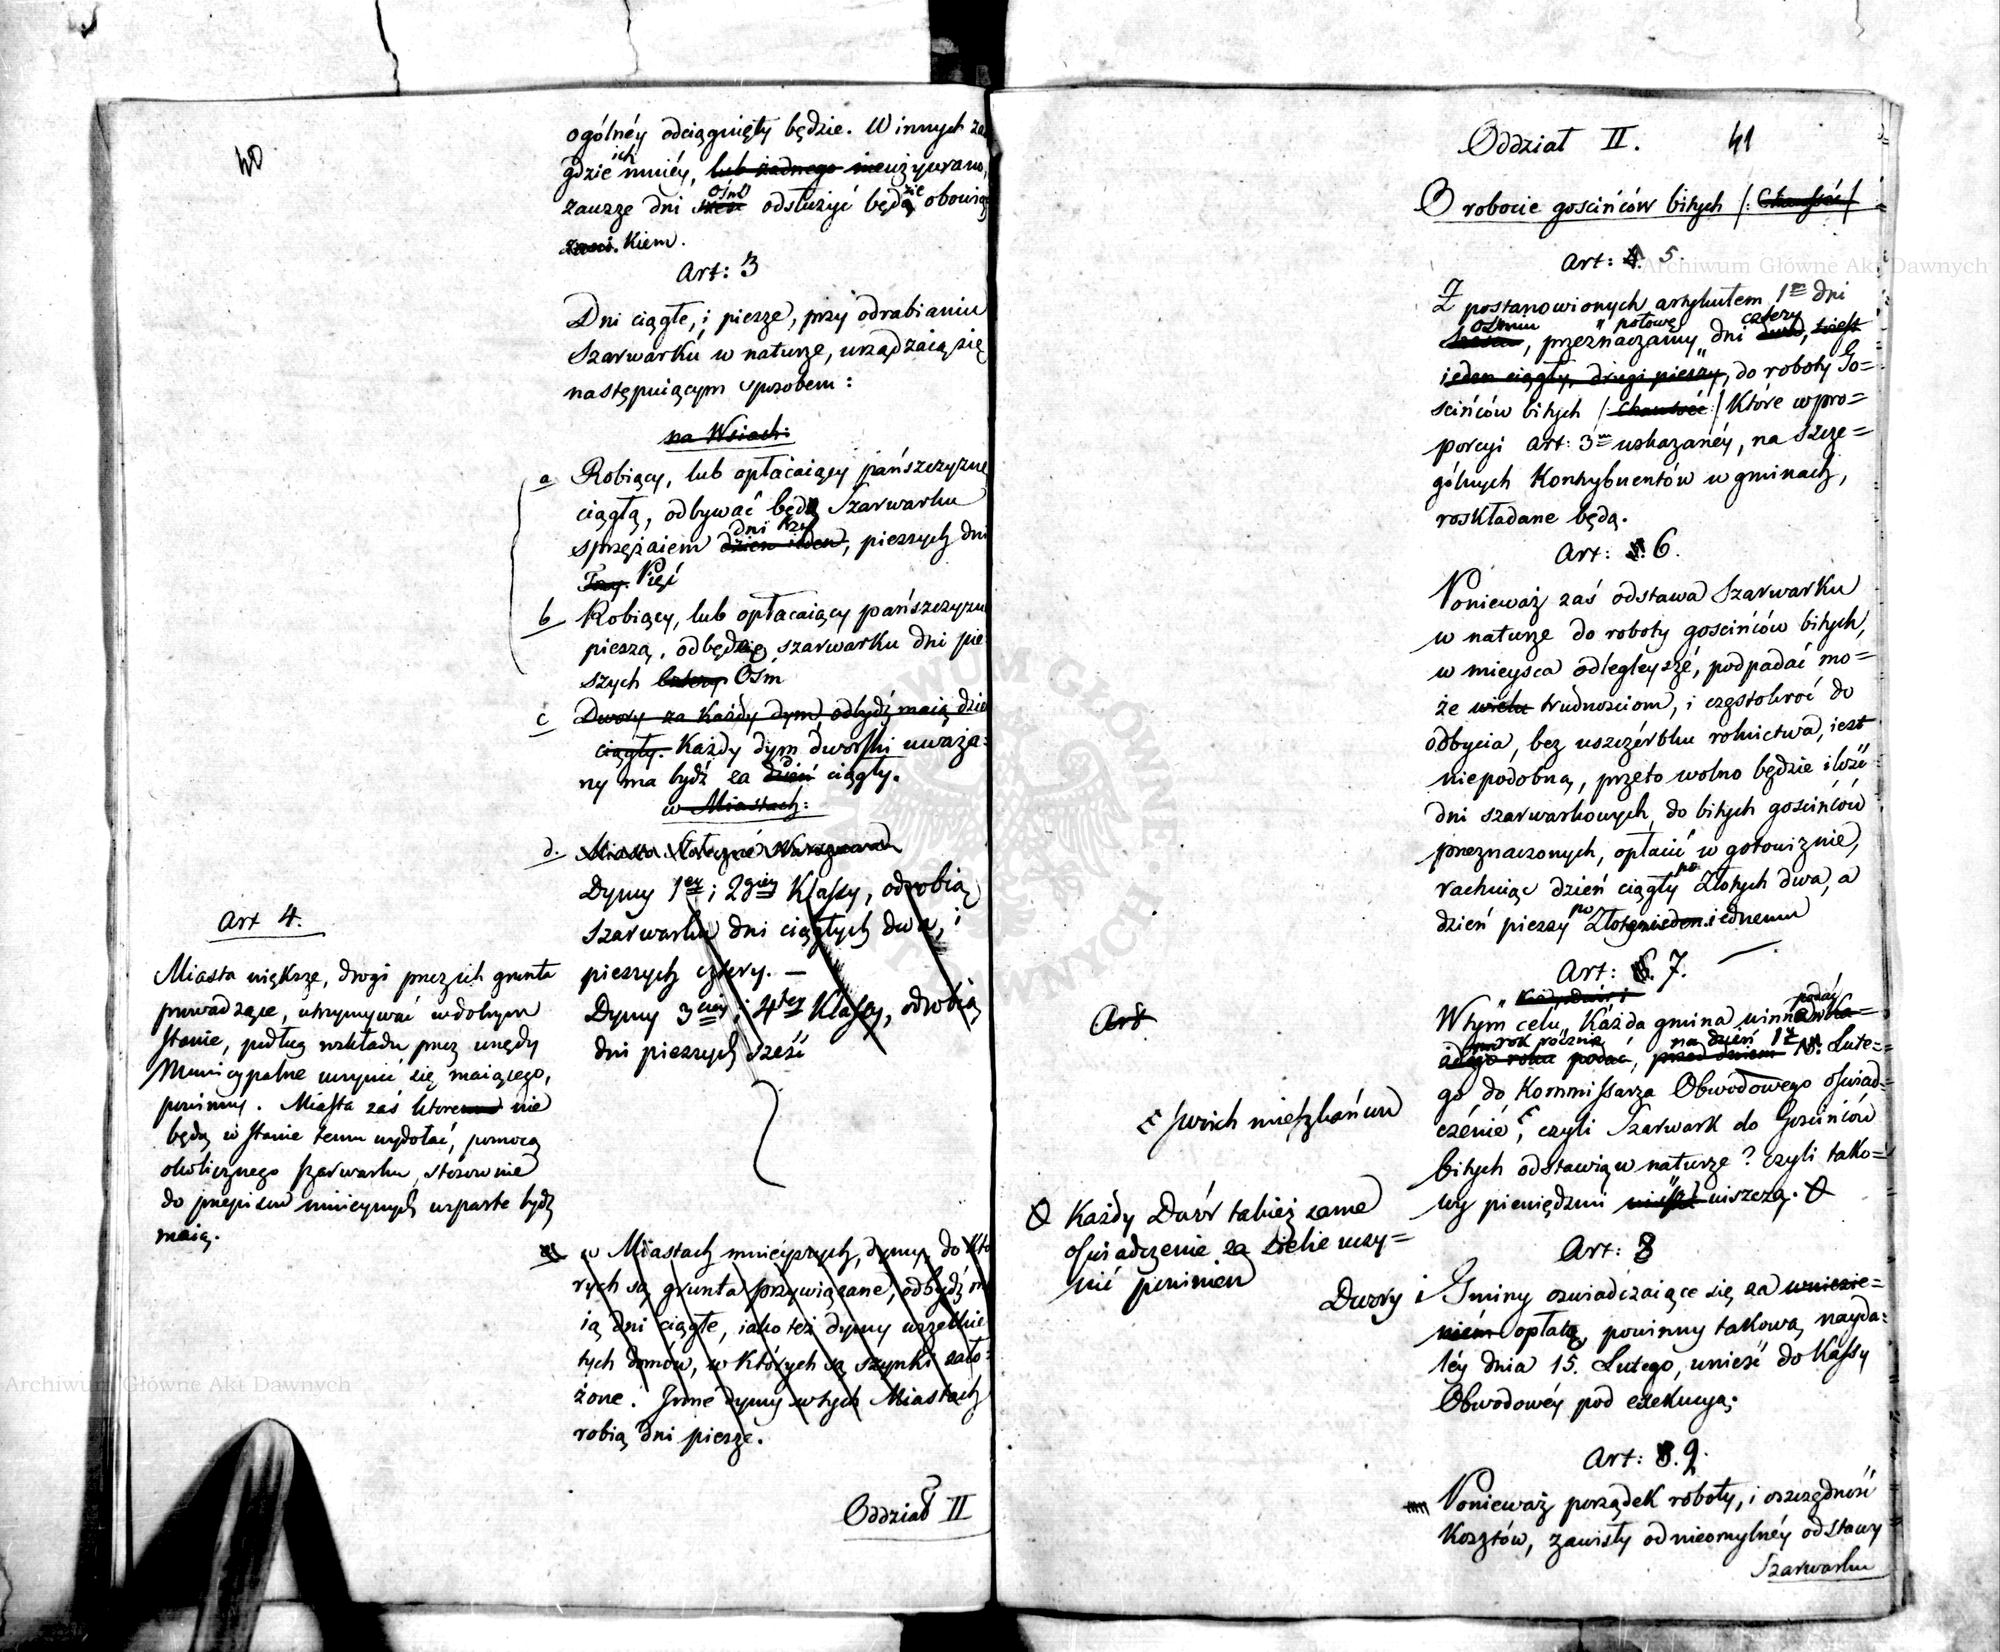 40
ogólnéy odciągnięty będzie. W innych
gdzie ich mniéy, lub żadnego nieużywano,
zawsze dni sześć ośm odsłużyć będą zie obowią
zani. kiem.
Art: 3
Dni ciągłe, i piesze, przy odrabianiu
Szarwarku w naturze, urządzaią się
następuiącym sposobem:
na Wsiach:
a Robiący, lub opłacaiący pańszczyznę
ciągłą, odbywać będą Szarwarku
sprzężaiem dzien ieden dni trzy, pieszych dni
Trzy. Pięć
b Robiący, lub opłacaiący pańszczyznę
pieszą, odbędzie szarwarku dni pie
szych cztery Ośm
c Dwory za każdy dym odbydź maią dzie
ciągły. Każdy dym dworski uważa=
ny ma bydź za dzień ciągły.
w Miastach:
d. Miasto Stołeczne Warszawa
Dymy 1ey i 2giey Klassy, odrobią
Szarwarku dni ciągłych dwa, i
pieszych cztery. —
Dymy 3ciey i 4tey Klassy, odrobią
dni pieszych sześć
Art 4.
Miasta większe, drogi przez ich grunta
prowadzące, utrzymywać w dobrym
stanie, podług rozkładu przez urzędy
Municypalne uczynić się maiącego,
powinny. Miasta zaś które nie
będą w stanie temu wydołać, pomocą
okolicznego szarwarku, stosownie
do przepisów ninieyszych wsparte bydź
maią.
w Miastach mnieyszych, dymy do któ
rych są grunta przywiązane, odbydź ma
ią dni ciągłe, iako też dymy wszelkie
tych domów, w których są szynki zało=
żone. Inne dymy w tych Miastach
robią dni piesze.
Oddział II
Oddział II. 41
O robocie gościńców bitych /: Chaussée /
Art: 4. 5.
Z postanowionych artykułem 1m dni
Sześciu ośmiu, przeznaczamy " połowę " dni dwa, cztery to iest
ieden ciągły, drugi pieszy, do roboty Go=
ścińców bitych /: Chaussée :/ Które w pro=
porcyi art: 3m wskazanéy, na Szcze=
gólnych Kontrybuentów w gminach,
roskładane będą.
Art: 5. 6.
Ponieważ zaś odstawa Szarwarku
w naturze do roboty gościńców bitych,
w mieysca odległeysze, podpadać mo=
że wielu trudnościom, i częstokroć do
odbycia, bez uszczérbku rolnictwa, iest
niepodobną, przeto wolno będzie ilość
dni szarwarkowych, do bitych gościńców
przeznaczonych, opłacić w gotowiznie,
rachuiąc dzień ciągły po Złotych dwa, a
dzień pieszy po Złotemu iednemu
Art: 6. 7.
W tym celu " każdy Dwór i " Każda gmina winna podać
co rok rocznie, na dzień 1 przed dniem 15. Lute=
go do Kommissarza Obwodowego oświad=
czenie, czyli Szarwark do Gościńców
bitych odstawią w naturze? czyli tako=
wy pieniędzmi uiszczą.
Art
swoich mieszkańców
Każdy Dwór takież same
oświadczenie za siebie uczy=
nić powinien
Art: 8
Dwory i Gminy oswiadczaiące się za wniesie=
niém opłatą, powinny takową, nayda=
léy dnia 15. Lutego, wnieść do Kassy
Obwodowéy pod exekucyą.
Art: 8. 9.
Ponieważ porządek roboty, i oszczędność
Kosztów, zawisły od nieomylnéy odstawy
Szarwarku
Archiwum Główne Akt Dawnych
Archiwum Główne Akt Dawnych